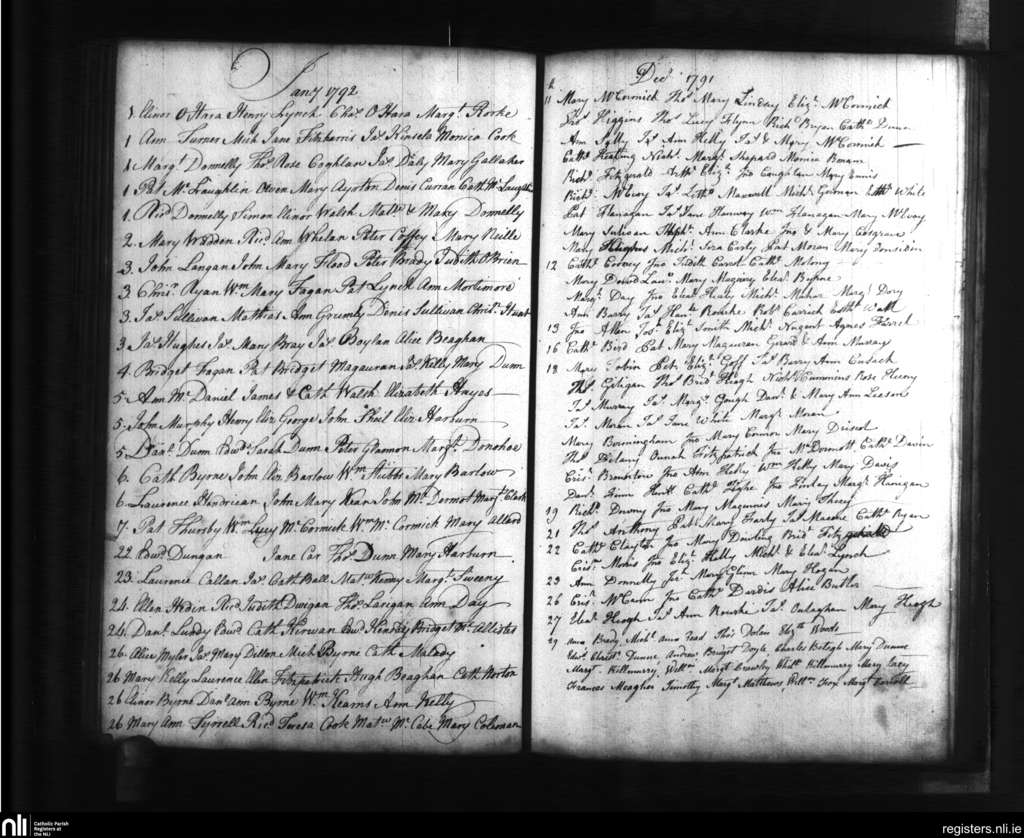 Jany 1792
1 Elinor O Hara Henry Lynch Chas. O Hara Margt. Rorke
1 Ann Turner Mich Jane Fitzharris Jas. Kinsela Monica Cook
1 Margt. Donnelly Thos. Rose Coghlan Jas. Daly Mary Gallaher
1 Pat Mc. Laughlin Owen Mary Ayrton Denis Curran Cath Mc. Laugh
1. Ricd Donnelly Simon Elinor Walsh Matw & Mary Donnelly
2. Mary Wadden Ricd. Ann Whelan Peter Coffey Mary Neille
3. John Langan John Mary Flood Peter Brady Judith O Brien
3 Chrisr. Ryan Wm. Mary Fagan Pat Lynch Ann Mortimore
3. Jas. Sullivan Mathias Ann Grumly Denis Sullivan Christr. Hunt
3 Jas. Hughes Jas. Mary Bray Jas. Boylan Alice Beaghan
4. Bridget Fagan Pat Bridget Magauran Kelly Mary Dunn
5 Ann Mc Daniel James & Cath Walsh Elizabeth Hayes
5. John Murphy Henry Eliz. George John Shiel Eliz. Harburn
5. Danl. Dunn Edwd. Sarah Dunn Peter Glannon Margt. Donohoe
6. Cath Byrne John Eliz Barlow Wm. Stubbs Mary Barlow
6. Laurence John Mary Kean John Mc. Dermot Margt. Clark
7 Pat Thursby Wm. Lucy Mc. Cormick Wm. Mc. Cormick Mary Allard
22 Edwd Dungan Jane Car Thos. Dunn Mary Harburn
23. Laurence Callan Jas. Cath Ball Matw Kenny Margt. Sweeny
24. Ellen Ricd Judith Dwigan Thos. Larigan Ann Day
24. Danl. Lundy Edwd Cath Kirwan Edwd. Bridget Mc. Allister
26. Alice Myler Jas. Mary Dillon Mich Byrne Cath Melady
26 Mary Kelly Laurence Ellen Fitzpatrick Hugh Beaghan Cath Norton
26 Elinor Byrne Danl. Ann Byrne Wm. Kearns Ann Kelly
26 Mary Ann Tyrrell Ricd. Teresa Cook Matw Mc. Cabe Mary Coleman
Decr 1791
11 Mary McCormick Thos Mary Lindsay Elizt. McCormick
Jno. Higgins Thos. Lucy Flynn Richd Bryan Cathe Dunn
Ann Jas. Ann Kelly Jas & Mary McCormick
Cathe Keating Nichs. Margt. Shepard Monica
Richd. Fitzgerald Arthr. Elizt. Jno Coughlan Mary Ennis
Richd. McEvoy Jas. Maxwell Michl. Gorman White
Pat Flanagan Jas. Jane Wm. Flanagan Mary McEvoy
Mary Sulivan Stephn. Ann Clarke Jno & Mary Cosgrave
Mary Hughes Michl. Sera Carty Pat Moran Mary
12 Cathe Cooney Jno Judith Carrol Cathe
Mary Dowd Law. Mary Eleat. Byrne
Margt. Day Jno Elear. Healy Michl. Mahon Margt. Dory
Ann Barry Jas Rourke Robt. Carrick Esthr Wall
13 Jno Allen Josh. Elizt. Smith Michl. Nugent Agnes French
16 Cathe Bird Pat Mary Magauran Girard & Ann Murray
18 Mary Tobin Pat. Elizt. Goff Jas Barry Ann Cusack
Thos Geligan Thos Brid. Nichs Cummins Rose Heeny
Jas. Murray Jas. Margt. Gough Danl. & Mary Ann Leeson
Jas. Moran Jas Jane White Margt. Moran
Mary Bermingham Jno Mary Connor Mary Driscol
Thos Delany Oonah Fitzpatrick Jno McDermott Cathe
Cris. Jno Ann Kelly Wm Kelly Mary Davis
Danl. Dunn Cathe Tighe Jno Lindsy Margt. Flanigan
19 Richd. Drumy Jno Mary Maguinis Mary
21 Thos Anthony Pat Mary Jas Cathe Ryan
22 Cathe Clayton Jno Mary Dowling Brid Fitzgerald
Crisr. Morris Jno Elizt. Kelly Michl. & Eleat. Lynch
23 Ann Donnelly Jas. Mary Glynn Mary Hogan
26 Cris. McCann Jno Cathe Dardis Alice Butler
27 Eleat. Keogh Jas Ann Rourke Jas. Calaghan Mary Keogh
29 Anne Brady, Michl. Anne Read Thos Dolan Elizth Woods
Edwd. Christr. Dunne Andrew Bridget Doyle, Charles Mary Dunne
Margt. Killmurry, Willm Margt Crawley Phill Killmurry Mary Lacy
Frances Meagher Timothy Margt Matthews, Willm Fox Margt
nli
Catholic Parish
Registers at
the NLI
registers.nli.ie